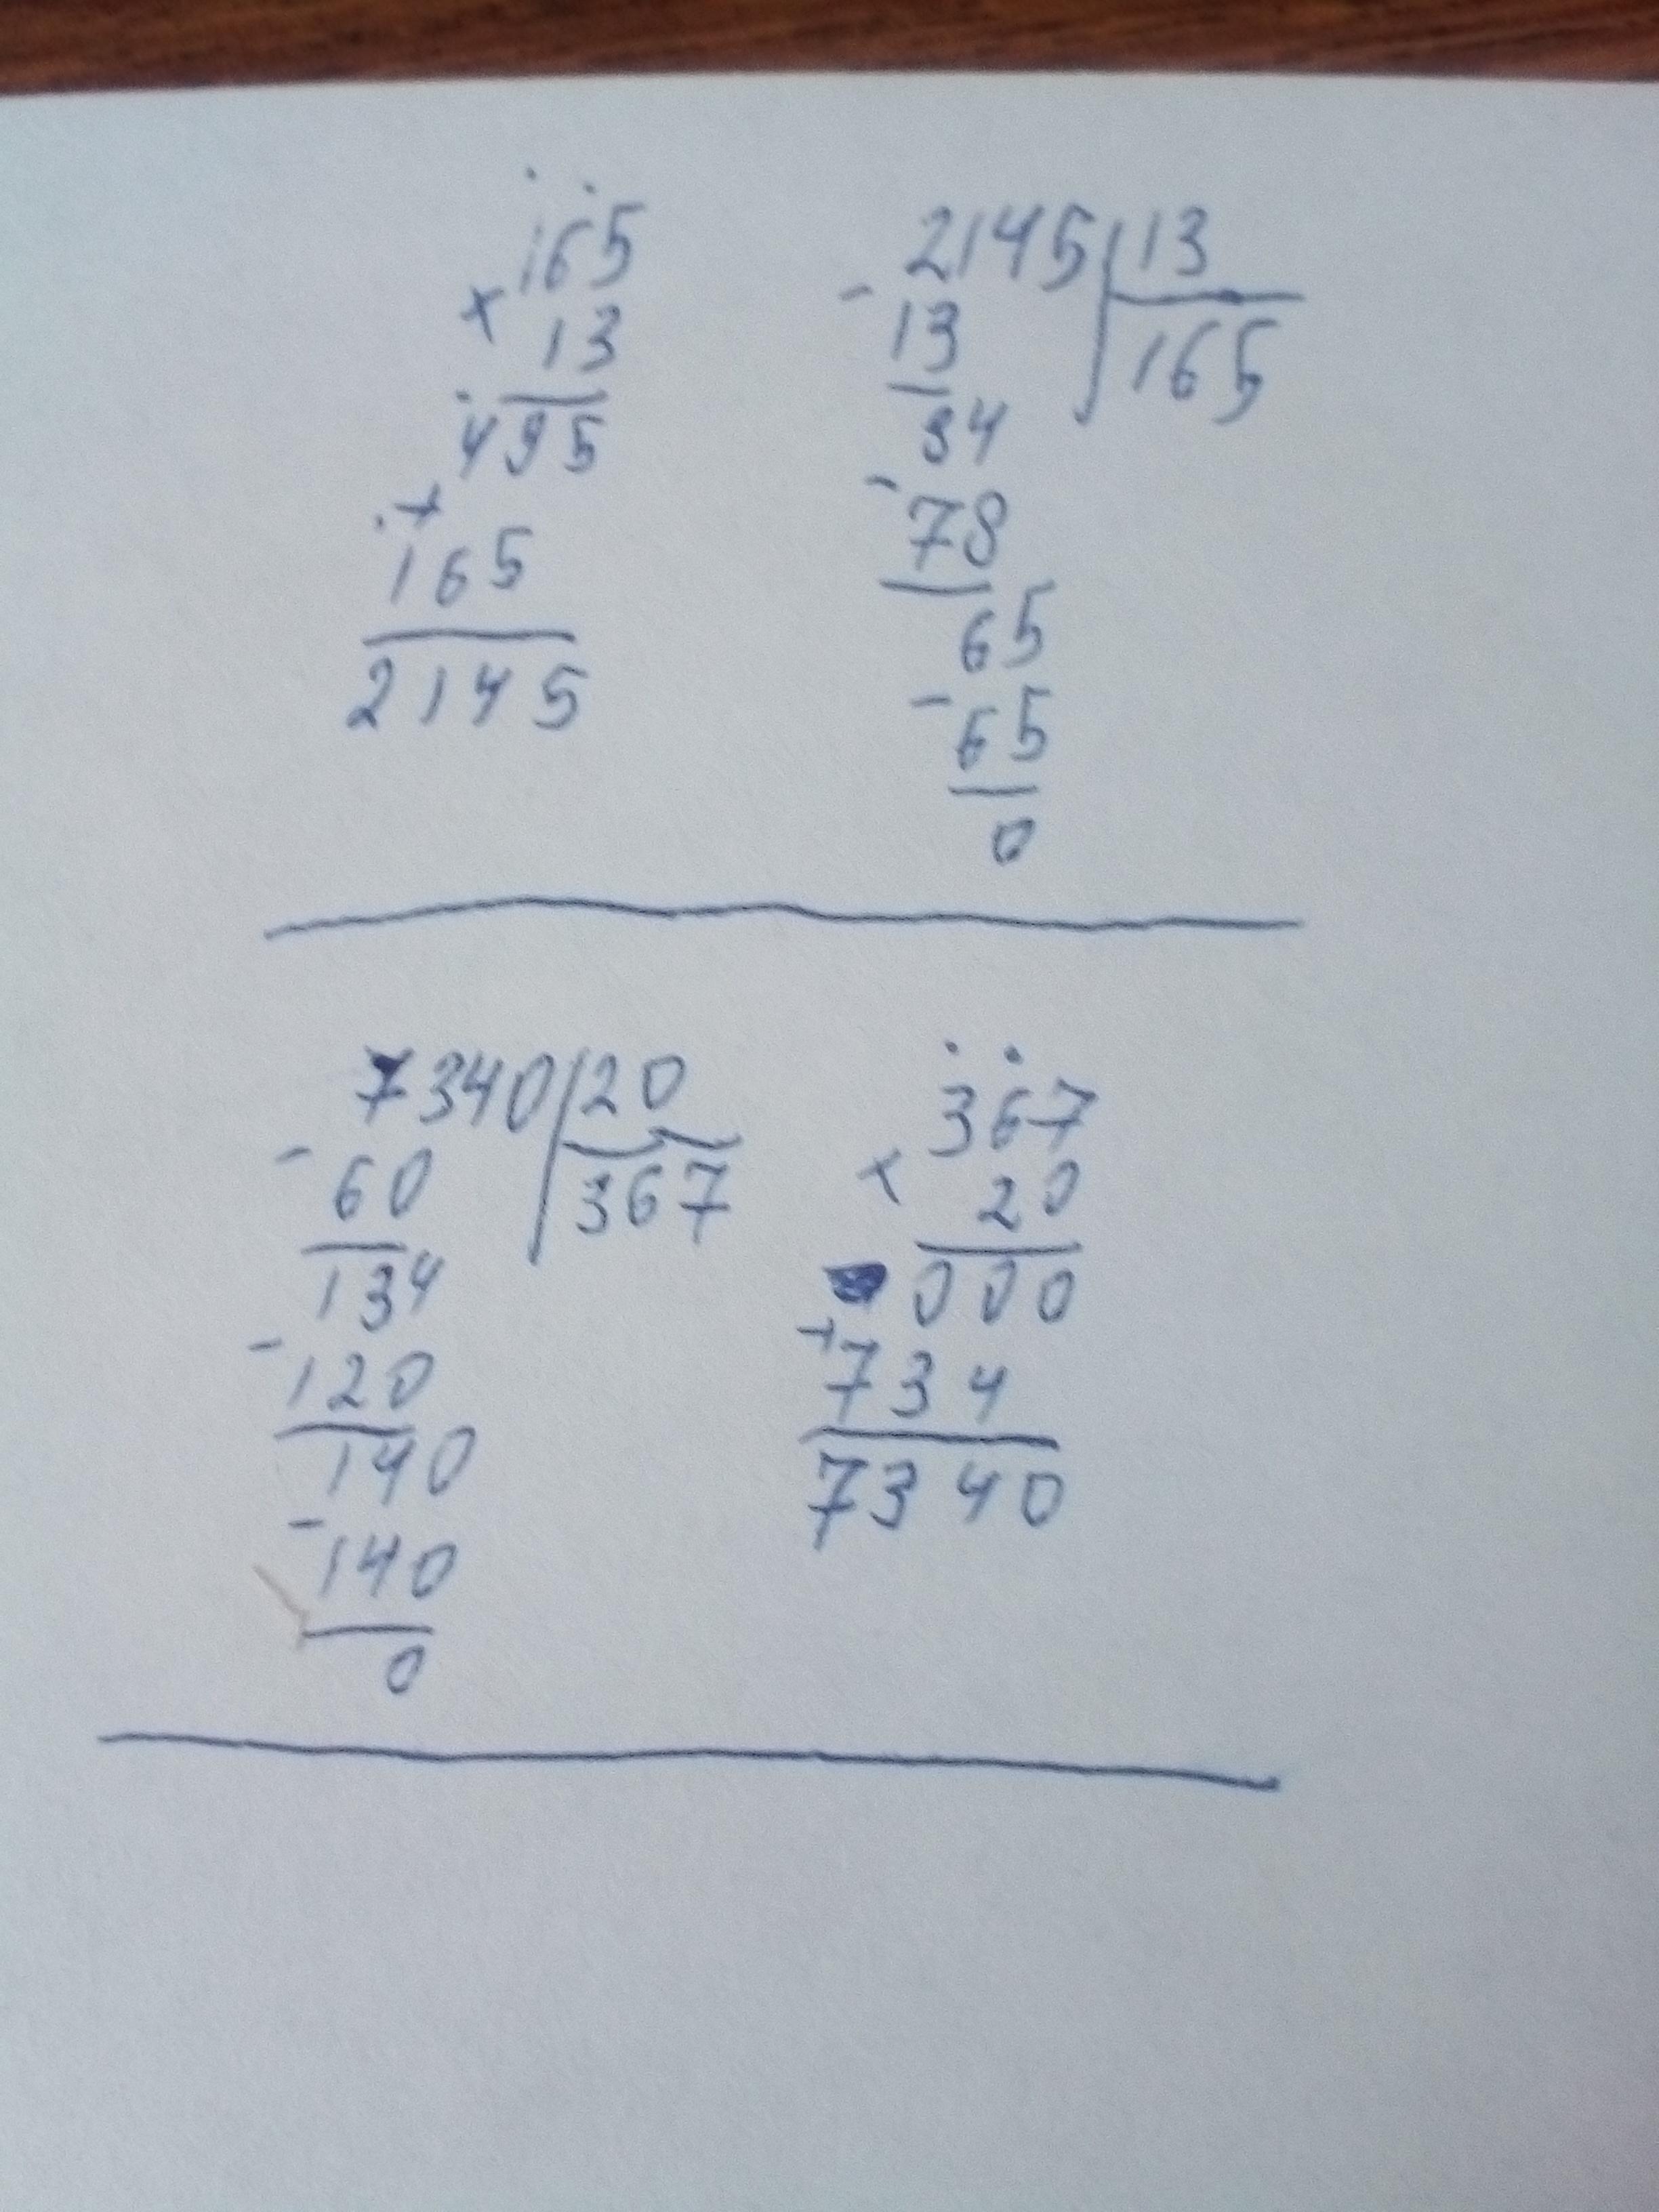 165
× 13
495
+
165
2145
2145 | 13
- 13
165
84
- 78
65
- 65
0
7340 | 20
- 60
367
134
- 120
140
- 140
0
367
× 20
000
+ 734
7340